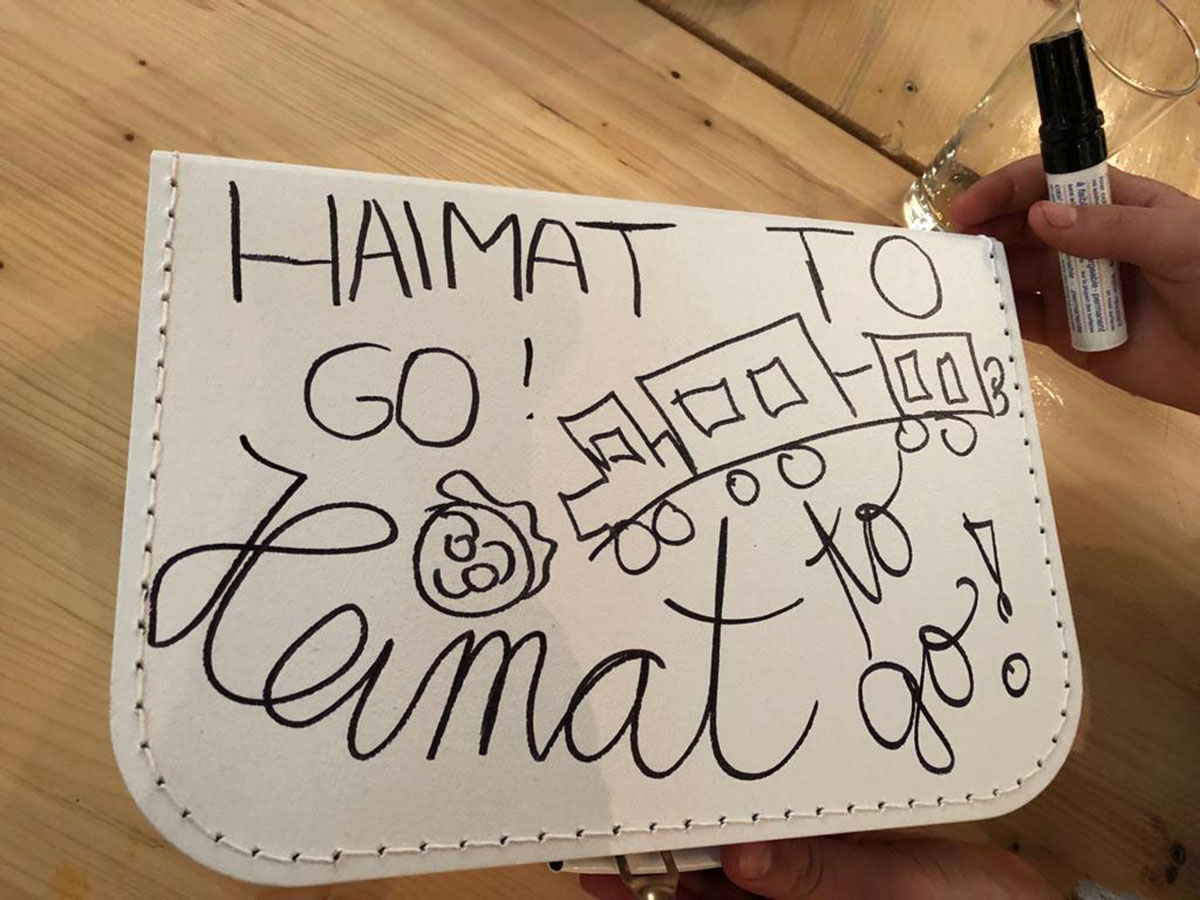 HAIMAT TO
GO!
Heimat to
go!
permanent